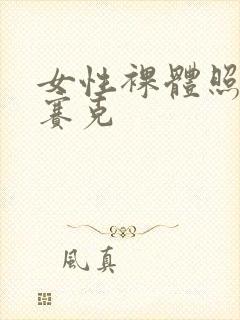 女性裸體照
賽克
風真